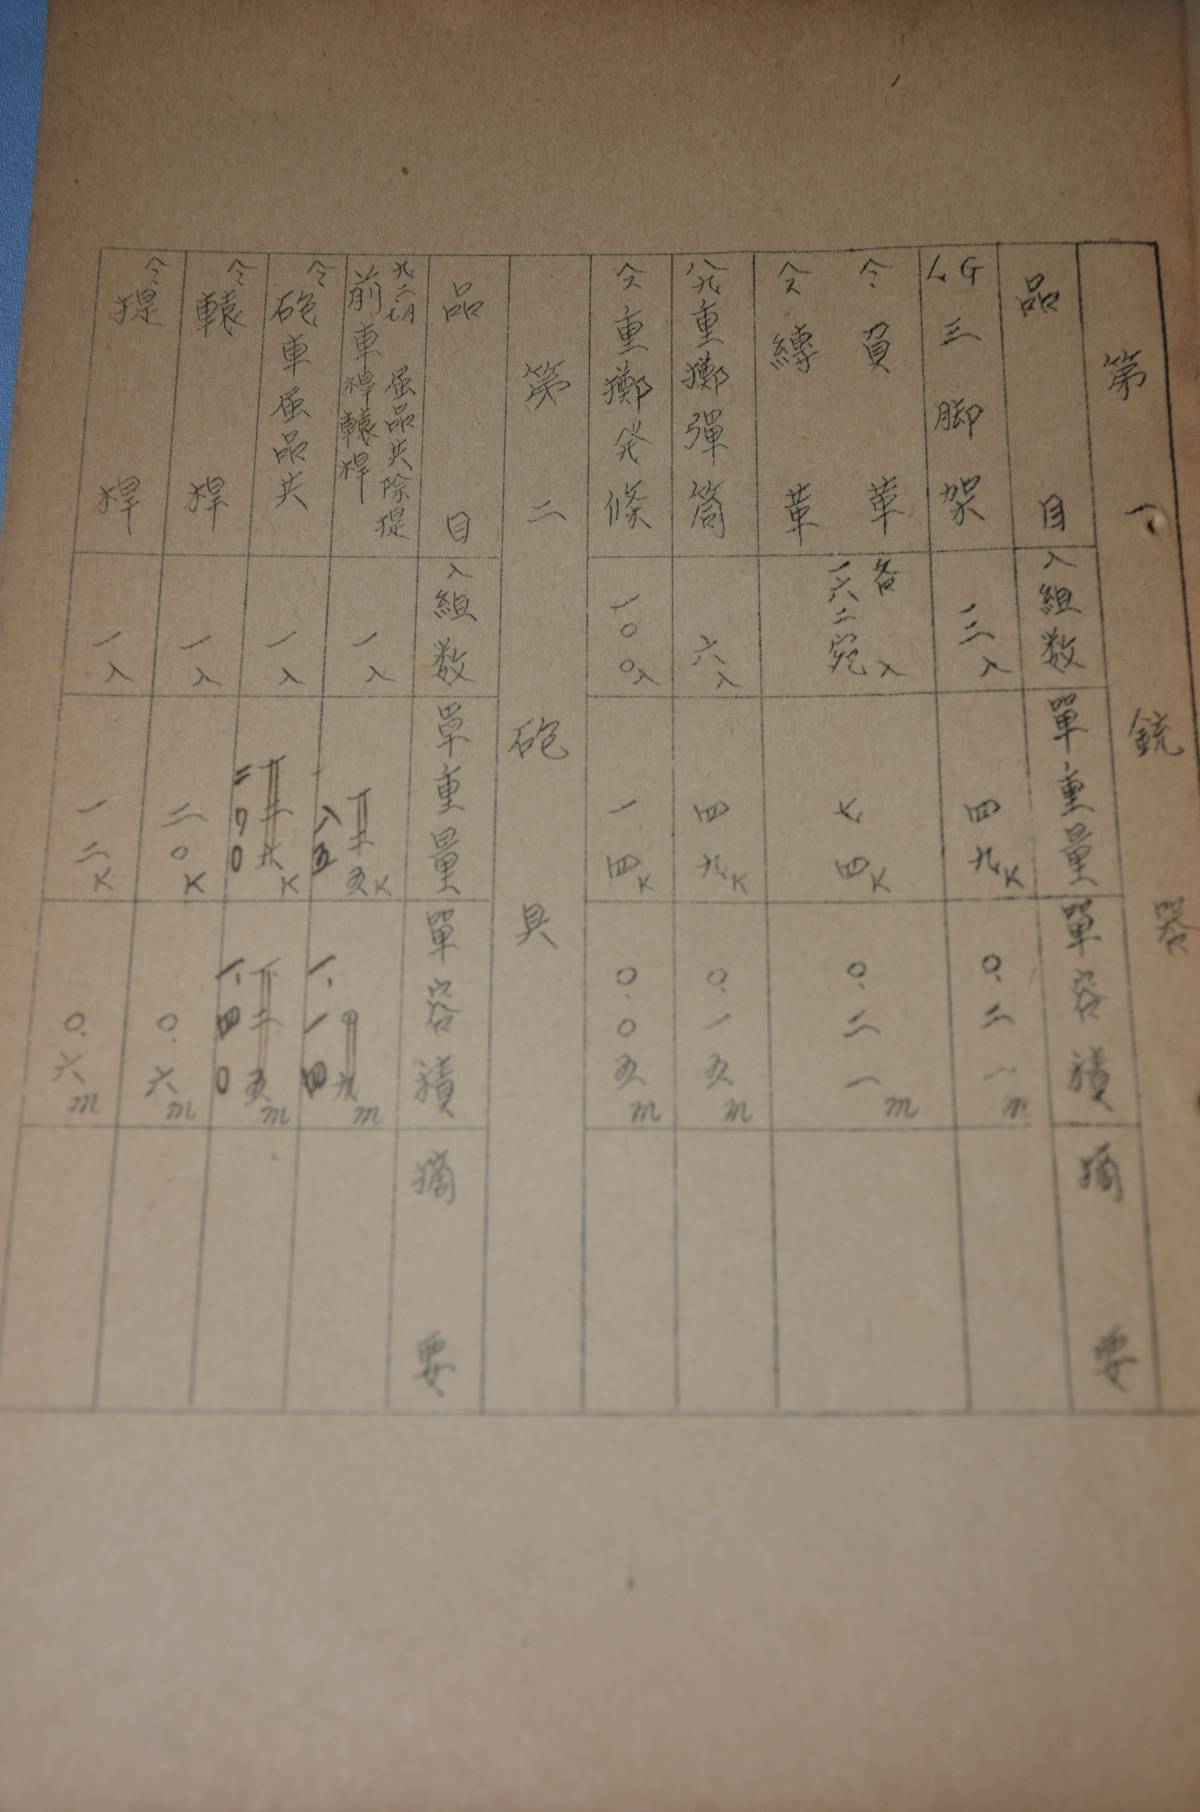 第一 銃器
品目 入組数 單重量 單容積 摘要
LG三脚架 一二入 四九K 〇.二一m
仝負革
仝縛革 各一六二宛入 七四K 〇.二一m
八九重擲彈筒 六入 四九K 〇.一五m
仝重擲発條 一〇〇入 一四K 〇.〇五m
第二 砲具
品目 入組数 單重量 單容積 摘要
九二七A 前車桿轅桿 属品共除提 一入 八五 K 一.一四 m
仝砲車属品共 一入 K 一.四〇 m
仝轅桿 一入 二〇K 〇.六m
仝提桿 一入 一二K 〇.六m